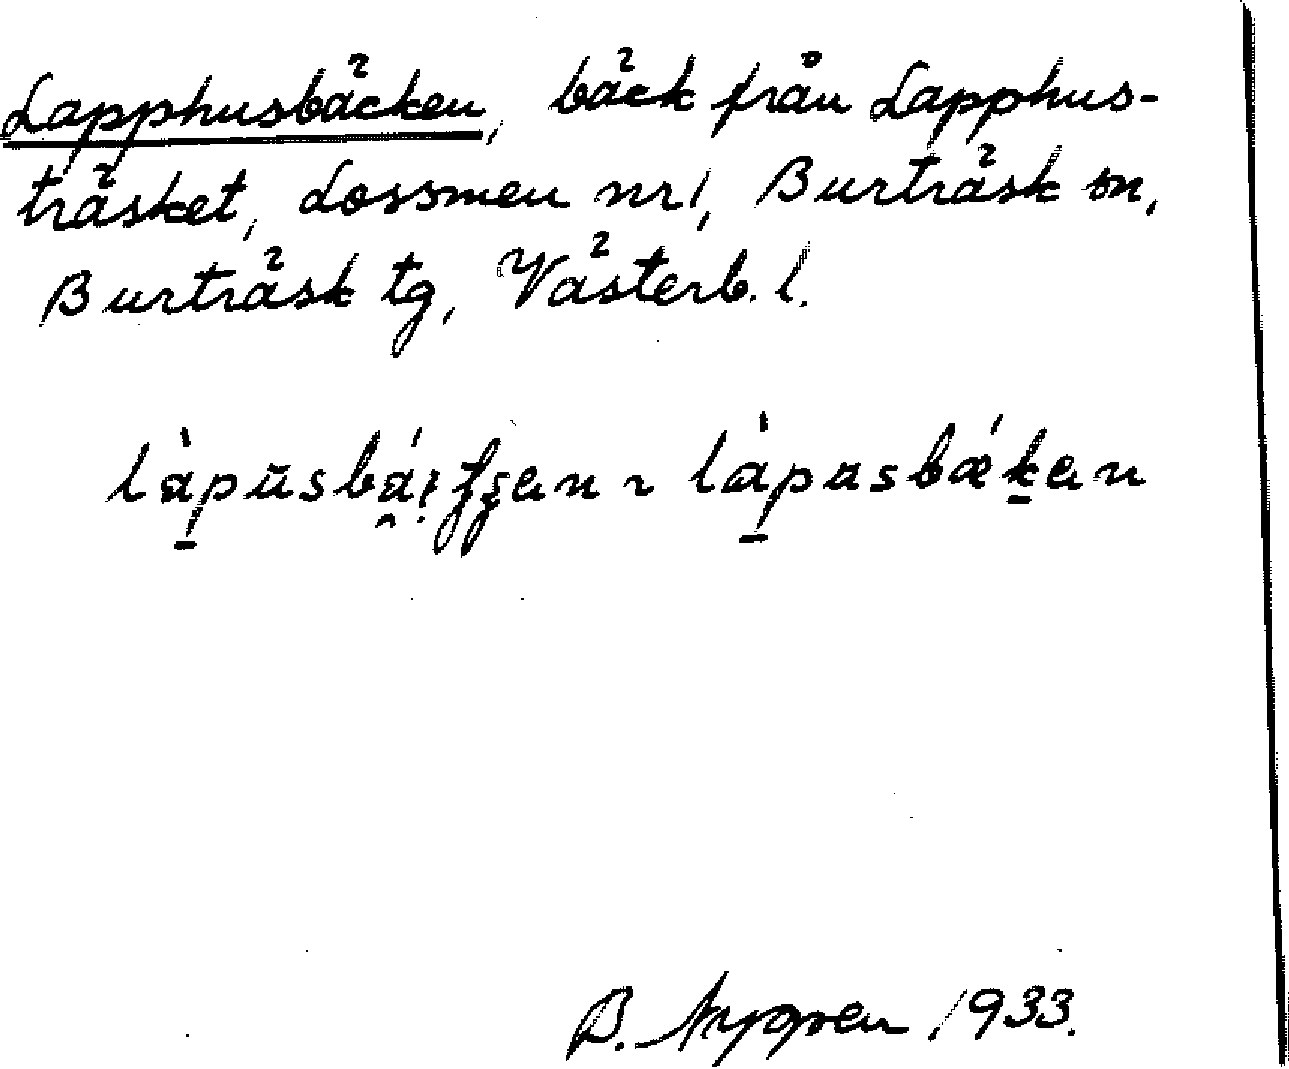 Lapphusbäcken, bäck från Lapphus-
träsket, Lossmen nr 1, Burträsk sn,
Burträsk tg, Västerb. l.
~ lápusbǽḵen
B. Nygren 1933.